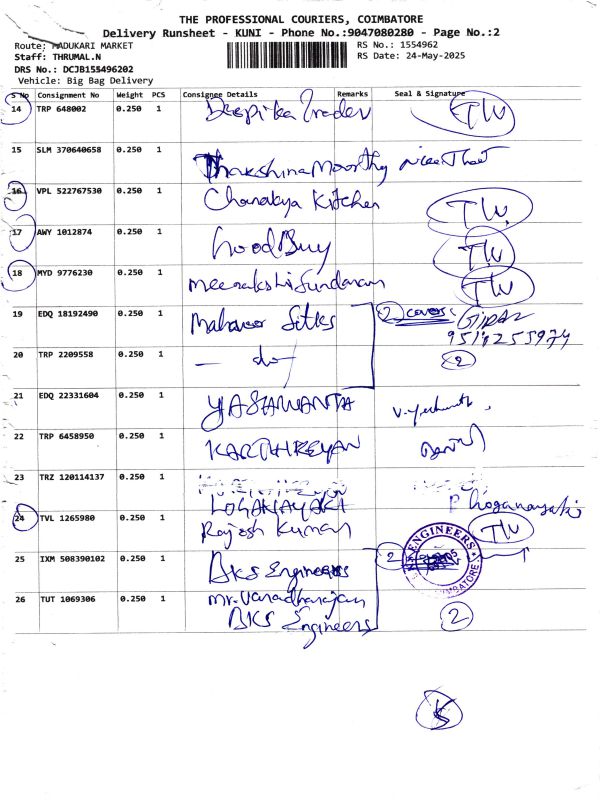 THE PROFESSIONAL COURIERS, COIMBATORE
Delivery Runsheet - KUNI - Phone No.:9047080280 - Page No.:2
Route: MADUKARI MARKET RS No.: 1554962
Staff: THRUMAL.N RS Date: 24-May-2025
DRS No.: DCJB155496202
Vehicle: Big Bag Delivery
S No Consignment No Weight PCS Consignee Details Remarks Seal & Signature
14 TRP 648002 0.250 1 Deepika Trader
15 SLM 370640658 0.250 1 Thakshina Moorthy
16 VPL 522767530 0.250 1 Chanakya Kitchen
17 AWY 1012874 0.250 1 Good Buy
18 MYD 9776230 0.250 1 meenakshi Sundaram
19 EDQ 18192490 0.250 1 Mahaveer 2 covers:
20 TRP 2209558 0.250 1 — do — 2
21 EDQ 22331604 0.250 1 YASHWANTA
22 TRP 6458950 0.250 1 KARTHIKEYAN
23 TRZ 120114137 0.250 1 LOGANAYAKI P Loganayaki
24 TVL 1265980 0.250 1 Rajesh Kumar
25 IXM 508390102 0.250 1 BKS Engineers 2 ENGINEERS
26 TUT 1069306 0.250 1 Mr. Varadharajan
BKS Engineers 2